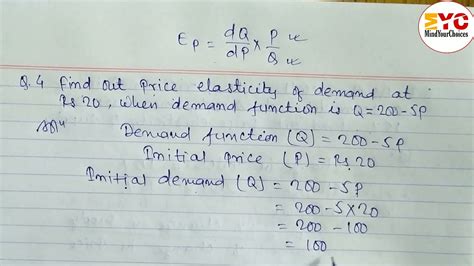 MYC
MindYourChoices
Ep = dQ/dP × P/Q
Q.4 Find out price elasticity of demand at
Rs 20, when demand function is Q=200-5P
Solⁿ Demand function (Q) = 200-5P
Initial price (P) = Rs. 20
Initial demand (Q) = 200-5P
= 200-5×20
= 200-100
= 100